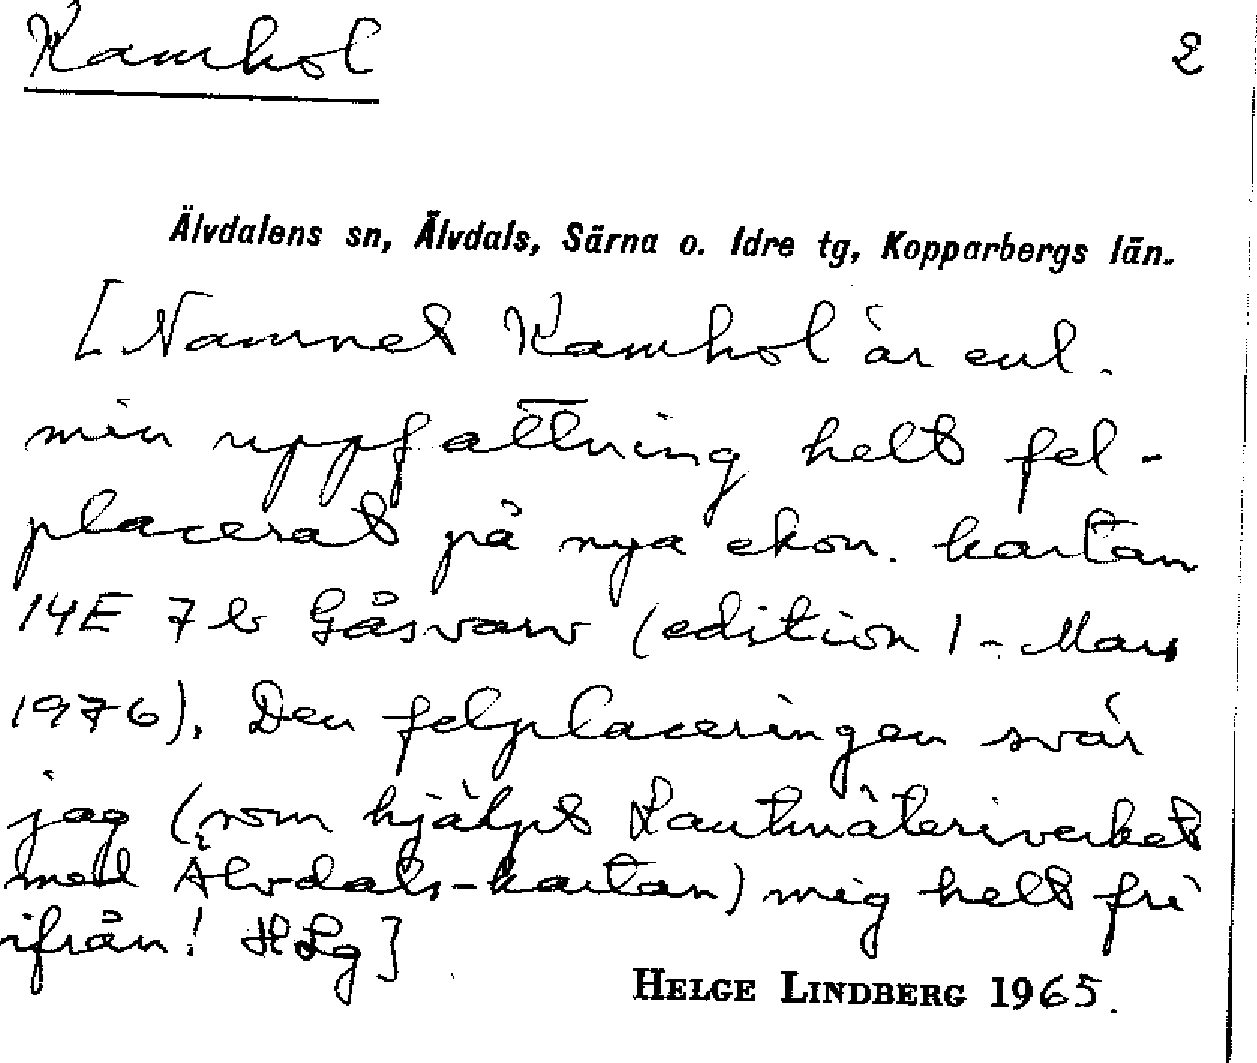 Kamhol 2
Älvdalens sn, Älvdals, Särna o. Idre tg, Kopparbergs län.
[Namnet Kamhol är enl.
min uppfattning helt fel-
placerat på nya ekon. kartan
14E 7b Gåsvarv (edition 1 - Mars
1976). Den felplaceringen svär
jag (som hjälpt Lantmäteriverket
med Älvdals-kartan) mig helt fri
ifrån! HLg]
HELGE LINDBERG 1965.